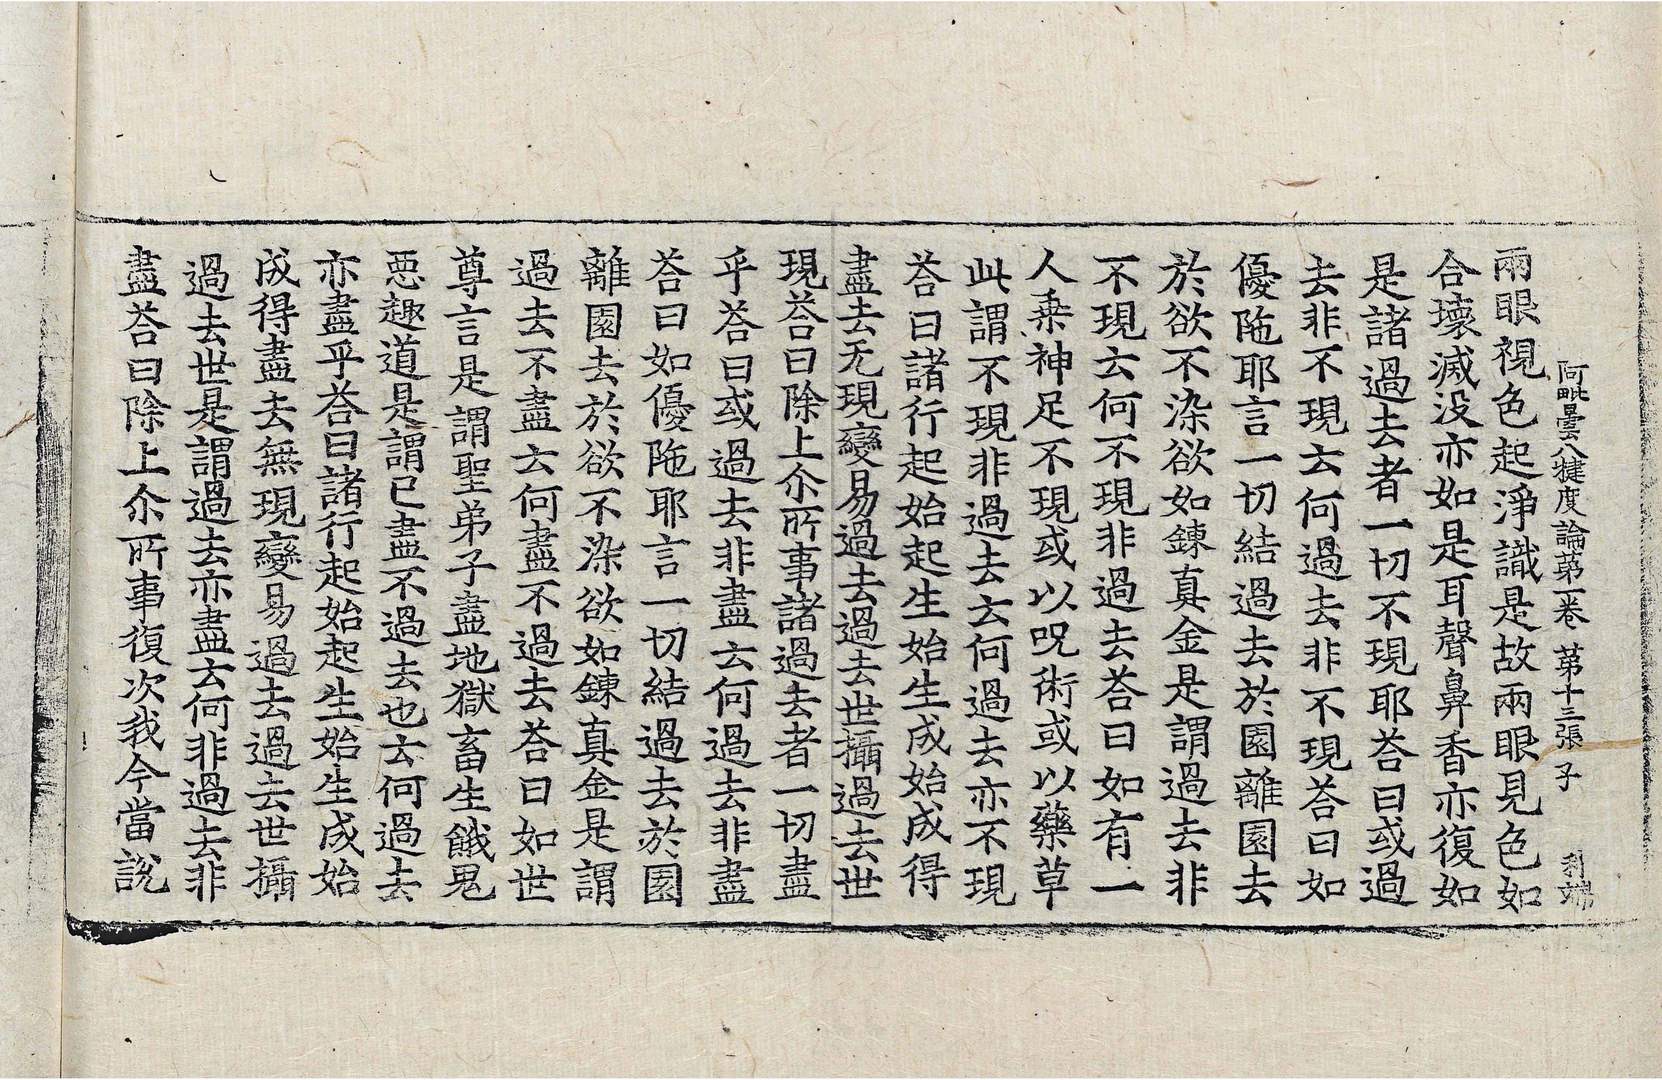 阿毗曇八犍度論第一卷 第十三張 子 利端
兩眼視色起淨識是故兩眼見色如
合壞滅没亦如是耳聲鼻香亦復如
是諸過去者一切不現耶荅曰或過
去非不現云何過去非不現荅曰如
優陁耶言一切結過去於園離園去
於欲不染欲如鍊真金是謂過去非
不現云何不現非過去荅曰如有一
人乗神足不現或以呪術或以藥草
此謂不現非過去云何過去亦不現
荅曰諸行起始起生始生成始成得
盡去无現變易過去過去世攝過去世
現荅曰除上尒所事諸過去者一切盡
乎荅曰或過去非盡云何過去非盡
荅曰如優陁耶言一切結過去於園
離園去於欲不染欲如鍊真金是謂
過去不盡云何盡不過去荅曰如世
尊言是謂聖弟子盡地獄畜生餓鬼
惡趣道是謂已盡不過去也云何過去
亦盡乎荅曰諸行起始起生始生成始
成得盡去無現變易過去過去世攝
過去世是謂過去亦盡云何非過去非
盡荅曰除上尒所事復次我今當說